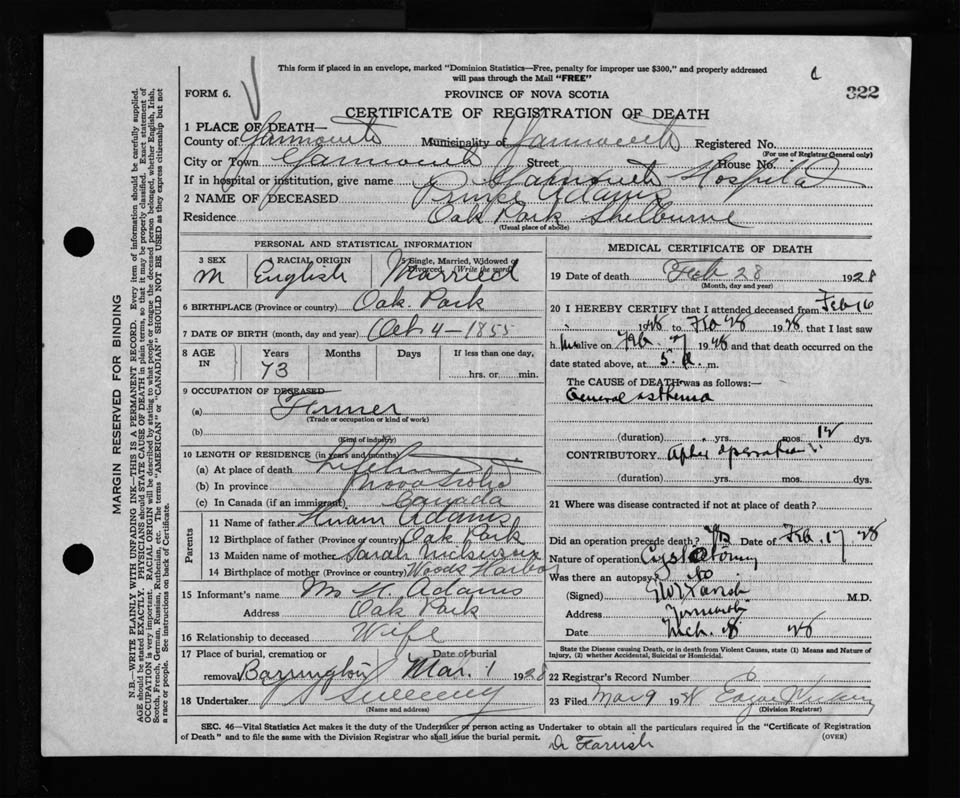 This form if placed in an envelope, marked "Dominion Statistics—Free, penalty for improper use $300," and properly addressed
will pass through the Mail "FREE"
322
FORM 6.
PROVINCE OF NOVA SCOTIA
CERTIFICATE OF REGISTRATION OF DEATH
1 PLACE OF DEATH—
County of Yarmouth Municipality of Yarmouth Registered No.
(For use of Registrar General only)
City or Town Yarmouth Street House No.
If in hospital or institution, give name Yarmouth Hospital
2 NAME OF DECEASED Prince Adams
Residence Oak Park Shelburne
(Usual place of abode)
PERSONAL AND STATISTICAL INFORMATION
3 SEX M
4 RACIAL ORIGIN English
5 Single, Married, Widowed or Divorced (Write the word) Married
6 BIRTHPLACE (Province or country) Oak Park
7 DATE OF BIRTH (month, day and year) Oct 4 - 1855
8 AGE IN Years Months Days If less than one day,
73 hrs. or min.
9 OCCUPATION OF DECEASED
(a)
(Trade or occupation or kind of work)
(b)
(Kind of industry)
10 LENGTH OF RESIDENCE (in years and months)
(a) At place of death Lifetime
(b) In province Nova Scotia
(c) In Canada (if an immigrant) Canada
Parents
11 Name of father Hiram Adams
12 Birthplace of father (Province or country) Oak Park
13 Maiden name of mother Sarah
14 Birthplace of mother (Province or country) Woods Harbor
15 Informant's name Mrs H. Adams
Address Oak Park
16 Relationship to deceased Wife
17 Place of burial, cremation or Date of burial
removal Barrington Mar. 1 1928
18 Undertaker Sweeny
(Name and address)
MEDICAL CERTIFICATE OF DEATH
19 Date of death Feb 28 1928
(Month, day and year)
20 I HEREBY CERTIFY that I attended deceased from Feb 16
1928 to Feb 28 1928, that I last saw
him alive on Feb. 27 1928 and that death occurred on the
date stated above, at 5. a m.
The CAUSE OF DEATH was as follows:—
General asthenia
(duration) yrs. mos. 12 dys.
CONTRIBUTORY after operation
(duration) yrs. mos. dys.
21 Where was disease contracted if not at place of death?
Did an operation precede death? Yes Date of Feb. 17 28
Nature of operation Cystotomy
Was there an autopsy? No
(Signed) Farish M.D.
Address Yarmouth
Date Mch. 8 28
State the Disease causing Death, or in death from Violent Causes, state (1) Means and Nature of
Injury, (2) whether Accidental, Suicidal or Homicidal.
22 Registrar's Record Number
23 Filed Mar 9 1928 Edgar
(Division Registrar)
SEC. 46—Vital Statistics Act makes it the duty of the Undertaker or person acting as Undertaker to obtain all the particulars required in the "Certificate of Registration
of Death" and to file the same with the Division Registrar who shall issue the burial permit. (OVER)
Dr Farish
MARGIN RESERVED FOR BINDING
N.B.—WRITE PLAINLY WITH UNFADING INK—THIS IS A PERMANENT RECORD. Every item of information should be carefully supplied.
AGE should be stated EXACTLY. PHYSICIANS should STATE CAUSE OF DEATH in plain terms, so that it may be properly classified. Exact statement of
OCCUPATION is very important. RACIAL ORIGIN will be described by stating to what people or tongue the deceased person belonged, whether English, Irish,
Scotch, French, German, Russian, Ruthenian, etc. The terms "AMERICAN" or "CANADIAN" SHOULD NOT BE USED as they express citizenship but not
a race or people. See instructions on back of Certificate.